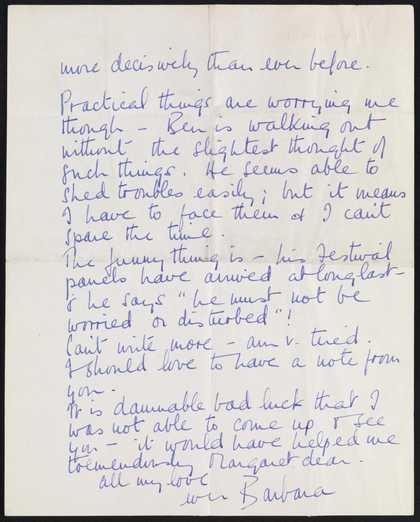 more decisively than ever before.
Practical things are worrying me
though – Ben is walking out
without the slightest thought of
such things. He seems able to
shed troubles easily; but it means
I have to face them & I can't
spare the time.
The funny thing is – his Festival
panels have arrived at long last –
& he says "he must not be
worried or disturbed"!
Can't write more – am v. tired.
I should love to have a note from
you.
It is damnable bad luck that I
was not able to come up & see
you – it would have helped me
tremendously Margaret dear.
all my love
ever Barbara